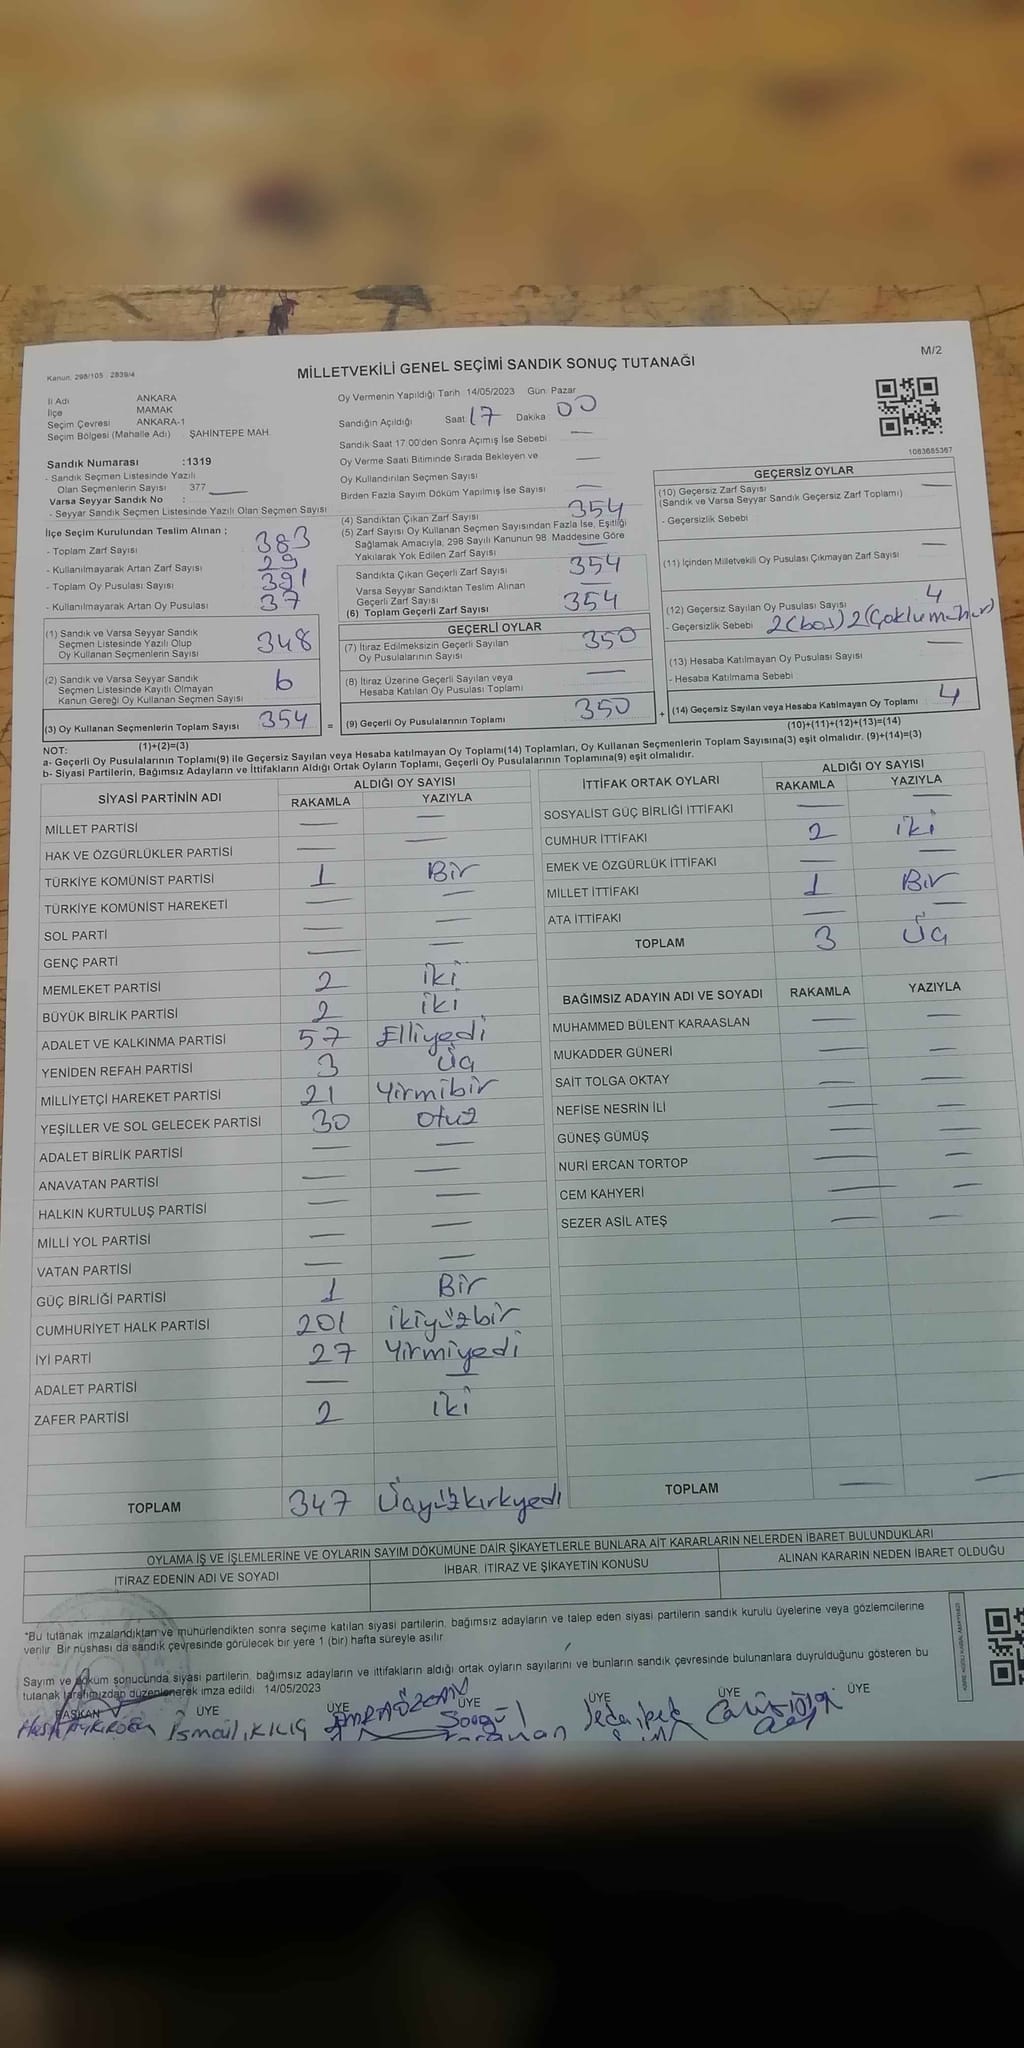 Kanun. 298/105 2839/4
MİLLETVEKİLİ GENEL SEÇİMİ SANDIK SONUÇ TUTANAĞI
M/2
İl Adı ANKARA
İlçe MAMAK
Seçim Çevresi ANKARA-1
Seçim Bölgesi (Mahalle Adı) ŞAHİNTEPE MAH.
Sandık Numarası :1319
- Sandık Seçmen Listesinde Yazılı
Olan Seçmenlerin Sayısı 377
Varsa Seyyar Sandık No :
- Seyyar Sandık Seçmen Listesinde Yazılı Olan Seçmen Sayısı
Oy Vermenin Yapıldığı Tarih 14/05/2023 Gün: Pazar
Sandığın Açıldığı Saat 17 Dakika 00
Sandık Saat 17 00'den Sonra Açımış İse Sebebi —
Oy Verme Saati Bitiminde Sırada Bekleyen ve
Oy Kullandırılan Seçmen Sayısı —
Birden Fazla Sayım Döküm Yapılmış İse Sayısı —
1083685367
İlçe Seçim Kurulundan Teslim Alınan ;
- Toplam Zarf Sayısı 383
- Kullanılmayarak Artan Zarf Sayısı 29
- Toplam Oy Pusulası Sayısı 391
- Kullanılmayarak Artan Oy Pusulası 37
(1) Sandık ve Varsa Seyyar Sandık
Seçmen Listesinde Yazılı Olup
Oy Kullanan Seçmenlerin Sayısı 348
(2) Sandık ve Varsa Seyyar Sandık
Seçmen Listesinde Kayıtlı Olmayan
Kanun Gereği Oy Kullanan Seçmen Sayısı 6
(3) Oy Kullanan Seçmenlerin Toplam Sayısı 354 =
(1)+(2)=(3)
(4) Sandıktan Çıkan Zarf Sayısı 354
(5) Zarf Sayısı Oy Kullanan Seçmen Sayısından Fazla İse, Eşitliği
Sağlamak Amacıyla, 298 Sayılı Kanunun 98. Maddesine Göre
Yakılarak Yok Edilen Zarf Sayısı —
Sandıkta Çıkan Geçerli Zarf Sayısı 354
Varsa Seyyar Sandıktan Teslim Alınan
Geçerli Zarf Sayısı —
(6) Toplam Geçerli Zarf Sayısı 354
GEÇERLİ OYLAR
(7) İtiraz Edilmeksizin Geçerli Sayılan
Oy Pusulalarının Sayısı 350
(8) İtiraz Üzerine Geçerli Sayılan veya
Hesaba Katılan Oy Pusulası Toplamı —
(9) Geçerli Oy Pusulalarının Toplamı 350 +
GEÇERSİZ OYLAR
(10) Geçersiz Zarf Sayısı —
(Sandık ve Varsa Seyyar Sandık Geçersiz Zarf Toplamı)
- Geçersizlik Sebebi
(11) İçinden Milletvekili Oy Pusulası Çıkmayan Zarf Sayısı —
(12) Geçersiz Sayılan Oy Pusulası Sayısı 4
- Geçersizlik Sebebi 2(boş) 2(Çoklu mühür)
(13) Hesaba Katılmayan Oy Pusulası Sayısı —
- Hesaba Katılmama Sebebi
(14) Geçersiz Sayılan veya Hesaba Katılmayan Oy Toplamı 4
(10)+(11)+(12)+(13)=(14)
NOT:
a- Geçerli Oy Pusulalarının Toplamı(9) ile Geçersiz Sayılan veya Hesaba katılmayan Oy Toplamı(14) Toplamları, Oy Kullanan Seçmenlerin Toplam Sayısına(3) eşit olmalıdır. (9)+(14)=(3)
b- Siyasi Partilerin, Bağımsız Adayların ve İttifakların Aldığı Ortak Oyların Toplamı, Geçerli Oy Pusulalarının Toplamına(9) eşit olmalıdır.
SİYASİ PARTİNİN ADI
ALDIĞI OY SAYISI
RAKAMLA YAZIYLA
MİLLET PARTİSİ — —
HAK VE ÖZGÜRLÜKLER PARTİSİ — —
TÜRKİYE KOMÜNİST PARTİSİ 1 Bir
TÜRKİYE KOMÜNİST HAREKETİ — —
SOL PARTİ — —
GENÇ PARTİ — —
MEMLEKET PARTİSİ 2 iki
BÜYÜK BİRLİK PARTİSİ 2 iki
ADALET VE KALKINMA PARTİSİ 57 Elliyedi
YENİDEN REFAH PARTİSİ 3 Üç
MİLLİYETÇİ HAREKET PARTİSİ 21 Yirmibir
YEŞİLLER VE SOL GELECEK PARTİSİ 30 Otuz
ADALET BİRLİK PARTİSİ — —
ANAVATAN PARTİSİ — —
HALKIN KURTULUŞ PARTİSİ — —
MİLLİ YOL PARTİSİ — —
VATAN PARTİSİ — —
GÜÇ BİRLİĞİ PARTİSİ 1 Bir
CUMHURİYET HALK PARTİSİ 201 ikiyüzbir
İYİ PARTİ 27 Yirmiyedi
ADALET PARTİSİ — —
ZAFER PARTİSİ 2 iki
TOPLAM 347 Üçyüzkırkyedi
İTTİFAK ORTAK OYLARI
ALDIĞI OY SAYISI
RAKAMLA YAZIYLA
SOSYALİST GÜÇ BİRLİĞİ İTTİFAKI — —
CUMHUR İTTİFAKI 2 iki
EMEK VE ÖZGÜRLÜK İTTİFAKI — —
MİLLET İTTİFAKI 1 Bir
ATA İTTİFAKI — —
TOPLAM 3 Üç
BAĞIMSIZ ADAYIN ADI VE SOYADI RAKAMLA YAZIYLA
MUHAMMED BÜLENT KARAASLAN — —
MUKADDER GÜNERİ — —
SAİT TOLGA OKTAY — —
NEFİSE NESRİN İLİ — —
GÜNEŞ GÜMÜŞ — —
NURİ ERCAN TORTOP — —
CEM KAHYERİ — —
SEZER ASİL ATEŞ — —
TOPLAM — —
OYLAMA İŞ VE İŞLEMLERİNE VE OYLARIN SAYIM DÖKÜMÜNE DAİR ŞİKAYETLERLE BUNLARA AİT KARARLARIN NELERDEN İBARET BULUNDUKLARI
İTİRAZ EDENİN ADI VE SOYADI
İHBAR, İTİRAZ VE ŞİKAYETİN KONUSU
ALINAN KARARIN NEDEN İBARET OLDUĞU
*Bu tutanak imzalandıktan ve mühürlendikten sonra seçime katılan siyasi partilerin, bağımsız adayların ve talep eden siyasi partilerin sandık kurulu üyelerine veya gözlemcilerine
verilir. Bir nüshası da sandık çevresinde görülecek bir yere 1 (bir) hafta süreyle asılır.
Sayım ve döküm sonucunda siyasi partilerin, bağımsız adayların ve ittifakların aldığı ortak oyların sayılarını ve bunların sandık çevresinde bulunanlara duyrulduğunu gösteren bu
tutanak tarafımızdan düzenlenerek imza edildi. 14/05/2023
BAŞKAN ÜYE ÜYE ÜYE ÜYE ÜYE ÜYE
İsmail KILIÇ